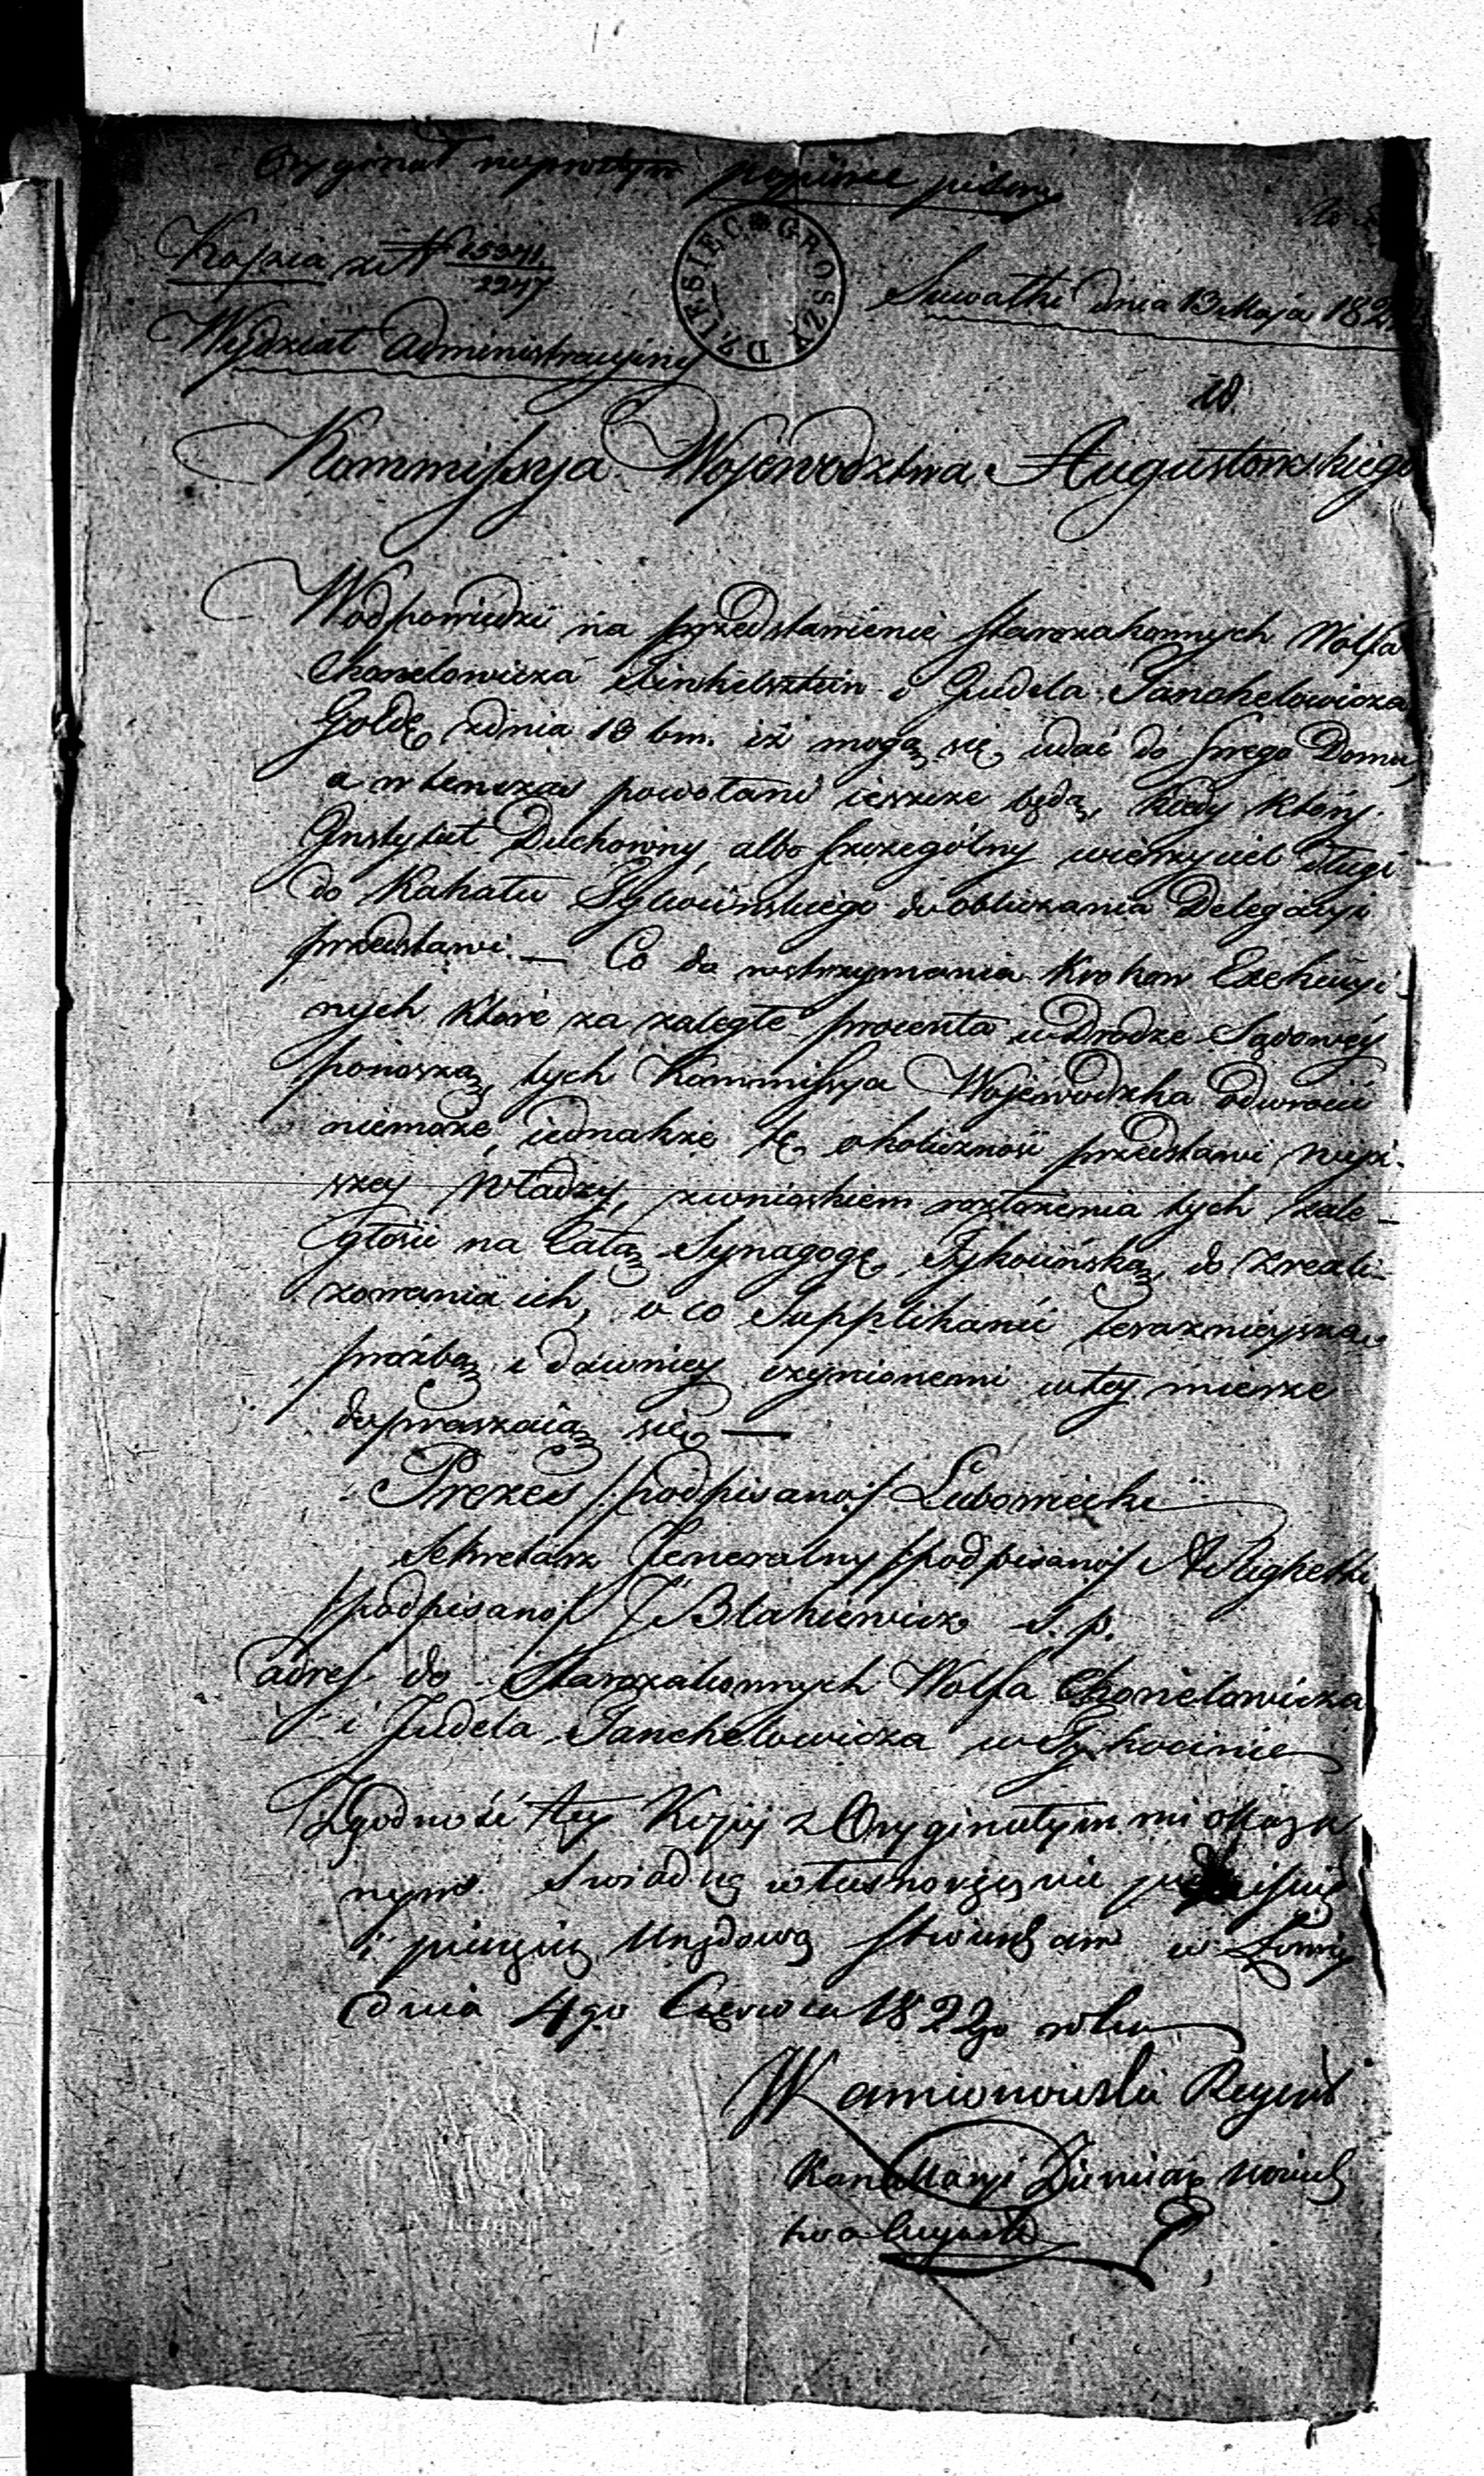 Oryginał na prostym papierze pisany
Kopia ze N 25341
2247
GROSZY DZIESIEC
Suwałki dnia 13 Maja 182
Wydział Administracyiny
18.
Kommissya Wojewodztwa Augustowskiego
W odpowiedzi na przedstawienie starozakonnych Wolfa
Chonelowicza Finkelsztein i Judela Janchelowicza
Goldę z dnia 18 bm. iż mogą się udać do swego Domu,
a wtenczas powołani ieszcze będą, kiedy który
Instytut Duchowny, albo szczególny wierzyciel długi
do Kahału Tykocińskiego do obliczania Delegacyi
przedstawi. — Co do wstrzymania Krokow Exekucyi-
nych które za zaległe procenta w Drodze Sądowéy
ponoszą, tych Kommissya Wojewodzka odwrócić
niemoże, iednakże tę okoliczność przedstawi wyż-
szey Władzy, z wnioskiem rozłożenia tych zale-
głości na całą Synagogę Tykocińską, do zreali-
zowania ich, o co Supplikanci terazniejszą
prożbą i dawniey czynionemi w tey mierze
dopraszaią się —
Prezes /:podpisano:/ Lubowiecki
Sekretarz Jeneralny /:podpisano:/ A Righetti
/podpisano/ J Błakiewicz S. p.
adres do Starozakonnych Wolfa Chonelowicza
i Judela Janchelowicza w Tykocinie
Zgodność tey Kopij z Oryginałym mi okaza
nym Swiadczę własnoręcznie podpisuię
i pieczęcią Urzędową stwierdzam w Łomży
dnia 4go Czerwca 1822go roku
W amionowski Regent
Kancellaryi Ziemiań Wojewodz
twa August